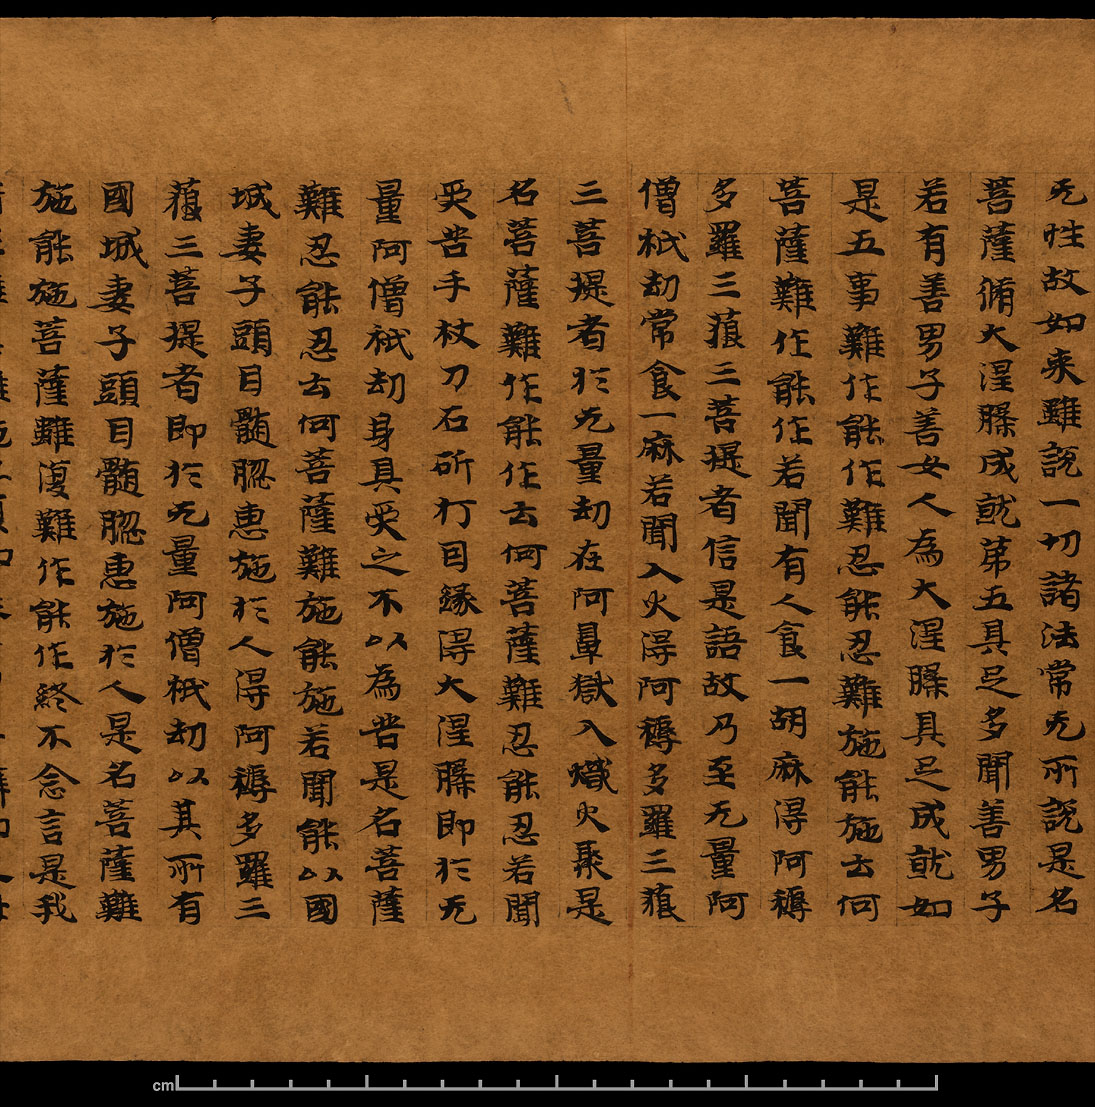 无性故如来雖說一切諸法常无所說是名
菩薩脩大涅槃成就苐五具足多聞善男子
若有善男子善女人為大涅槃具足成就如
是五事難作能作難忍能忍難施能施云何
菩薩難作能作若聞有人食一胡麻得阿耨
多羅三藐三菩提者信是語故乃至无量阿
僧祇劫常食一麻若聞入火得阿耨多羅三藐
三菩提者於无量劫在阿鼻獄入熾火聚是
名菩薩難作能作云何菩薩難忍能忍若聞
受苦手杖刀石斫打因緣得大涅槃即於无
量阿僧祇劫身具受之不以為苦是名菩薩
難忍能忍云何菩薩難施能施若聞能以國
城妻子頭目髓腦惠施於人得阿耨多羅三
藐三菩提者即於无量阿僧祇劫以其所有
國城妻子頭目髓腦惠施於人是名菩薩難
施能施菩薩雖復難作能作終不念言是我
cm